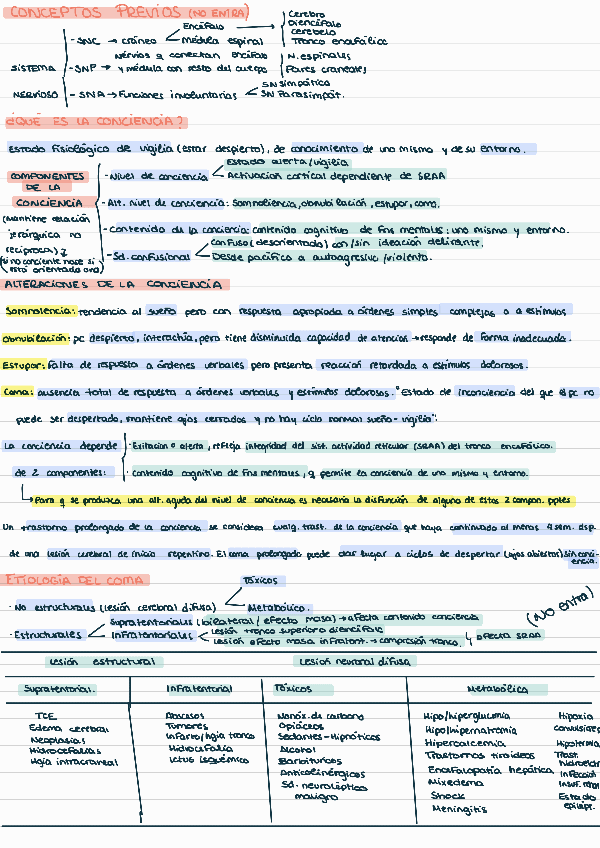 CONCEPTOS PREVIOS (NO ENTRA)
SISTEMA NERVIOSO
- SNC → cráneo
Encéfalo →
Cerebro
Diencéfalo
cerebelo
Tronco encefálico
Médula espinal
- SNP → Nervios q conectan encéfalo
y médula con resto del cuerpo
N. espinales
Pares craneales
- SNA → Funciones involuntarias
SN Simpático
SN Parasimpát.
¿QUÉ ES LA CONCIENCIA?
Estado fisiológico de vigilia (estar despierto), de conocimiento de uno mismo y de su entorno.
COMPONENTES
DE LA
CONCIENCIA
(Mantiene relación
jerárquica no
recíproca)
(si no conciente no se si
está orientado ono)
- Nivel de conciencia
Estado alerta/vigilia
Activación cortical dependiente de SRAA
- Alt. nivel de conciencia: Somnolencia, obnubilación, estupor, coma.
- Contenido de la conciencia: contenido cognitivo de Fns mentales: uno mismo y entorno.
- Sd. confusional
Confuso (desorientado) con/sin ideación delirante.
Desde pacífico a autoagresivo/violento.
ALTERACIONES DE LA CONCIENCIA
Somnolencia: tendencia al sueño pero con respuesta apropiada a órdenes simples complejas o a estímulos
Obnubilación: pc despierto, interactúa, pero tiene disminuida capacidad de atención → responde de forma inadecuada.
Estupor: Falta de respuesta a órdenes verbales pero presenta reacción retardada a estímulos dolorosos.
Coma: ausencia total de respuesta a órdenes verbales y estímulos dolorosos. "Estado de inconciencia del que el pc no
puede ser despertado, mantiene ojos cerrados y no hay ciclo normal sueño-vigilia":
La conciencia depende
de 2 componentes:
- Exitación o alerta, refleja integridad del sist. actividad reticular (SRAA) del tronco encefálico.
- contenido cognitivo de Fns mentales, q permite la conciencia de uno mismo y entorno.
→ Para q se produzca una alt. aguda del nivel de conciencia es necesaria la disfunción de alguno de estos 2 compon. pples
Un trastorno prolongado de la conciencia se considera cualq. trast. de la conciencia que haya continuado al menos 4 sem. dsp.
de una lesión cerebral de inicio repentino. El coma prolongado puede dar lugar a ciclos de despertar (ojos abiertos) sin conciencia.
ETIOLOGÍA DEL COMA
(No entra)
- No estructurales (lesión cerebral difusa)
Tóxicos
Metabólico.
- Estructurales
Supratentoriales (bilateral / efecto masa) → afecta contenido conciencia
Infratentoriales
Lesión tronco superior o diencéfalo
Lesión efecto masa infratent. → compresión tronco.
afecta SRAA
Lesión estructural
Lesión neuronal difusa
Supratentorial.
Infratentorial
Tóxicos
Metabólica
TCE
Edema cerebral
Neoplasias
Hidrocefalias
Hgia intracraneal
Abscesos
Tumores
Infarto/hgia tronco
Hidrocefalia
Ictus isquémico
Monóx. de carbono
Opiáceos
Sedantes-Hipnóticos
Alcohol
Barbitúricos
Anticolinérgicos
Sd. neuroléptico
maligno
Hipo/hiperglucemia
Hipo/hipernatremia
Hipercalcemia
Trastornos tiroideos
Encefalopatía hepática
Mixedema
Shock
Meningitis
Hipoxia
Hipotermia
Trast.
Infección
Estado
epilépt.